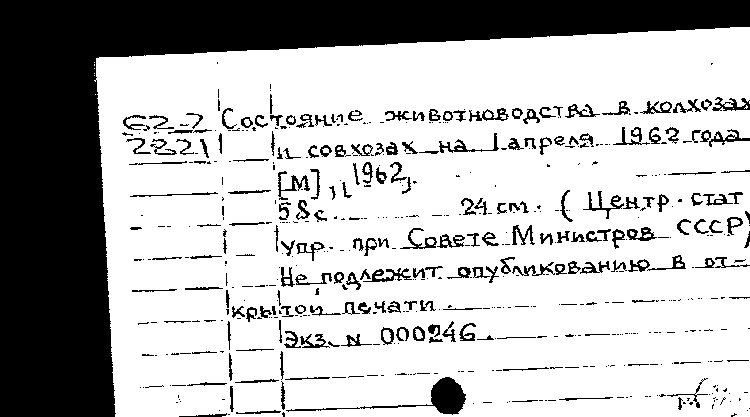 62-7 Состояние животноводства в колхозах
2821 и совхозах на 1 апреля 1962 года
[М], [1962].
58с. 24 см. (Центр. стат
упр. при Совете Министров СССР)
Не подлежит опубликованию в от-
крытой печати.
Экз. N 000246.